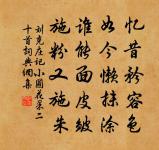 忆昔矜容色
如今懒抹涂
谁能面皮皱
施粉又施朱
刘克庄记小圃花果二
十首词典调集